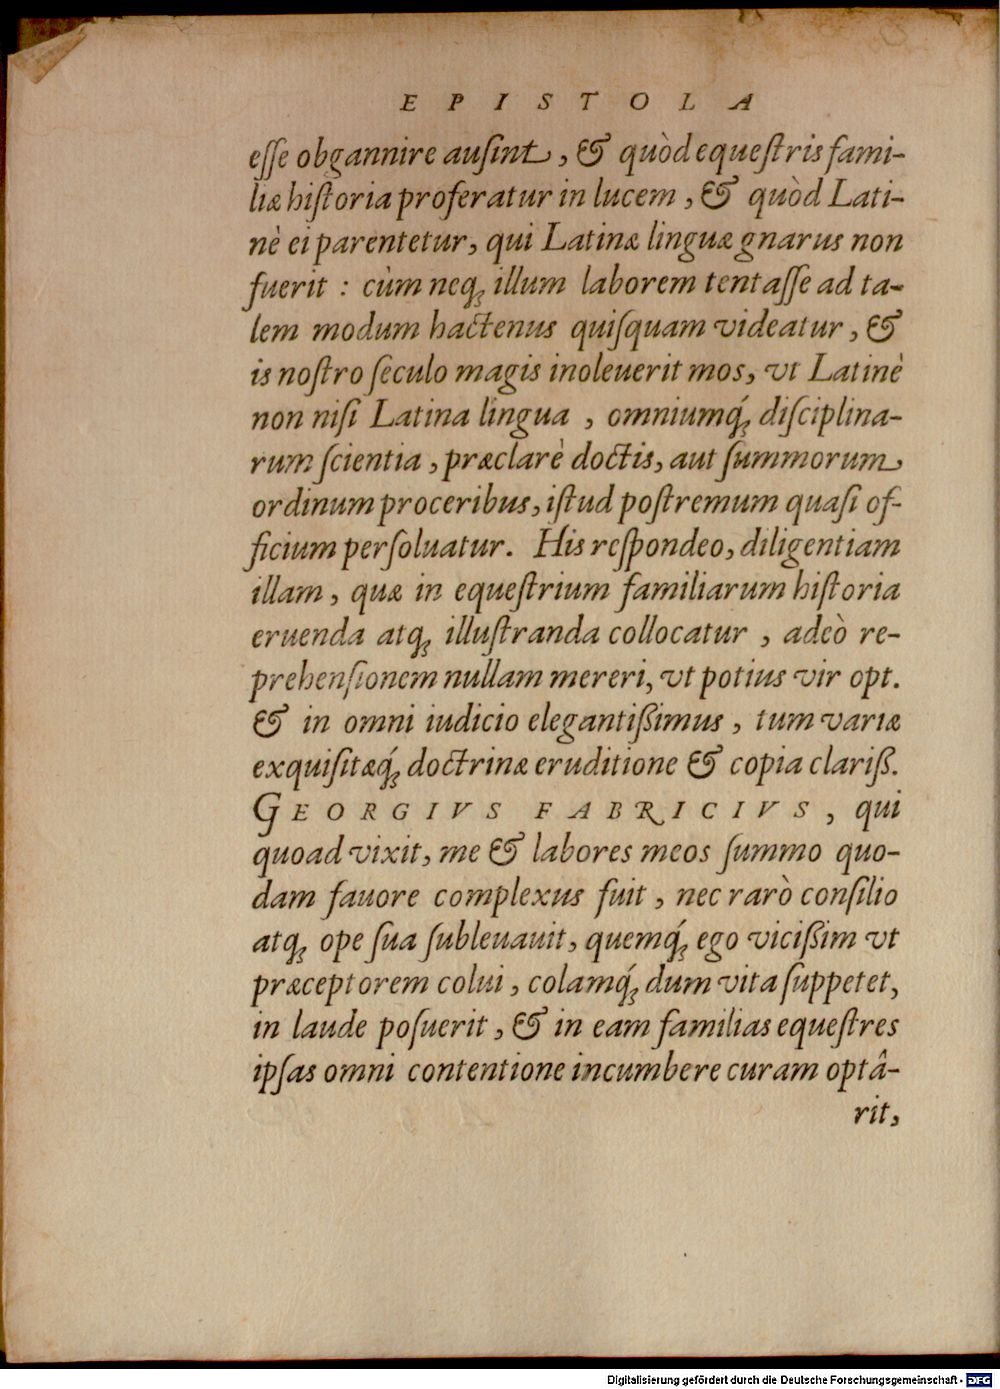 EPISTOLA
eſſe obgannire auſint, & quòd equeſtris fami-
liæ hiſtoria proferatur in lucem, & quòd Lati-
nè ei parentetur, qui Latinæ linguæ gnarus non
fuerit : cùm neq; illum laborem tentaſſe ad ta-
lem modum hactenus quiſquam videatur, &
is noſtro ſeculo magis inoleuerit mos, vt Latinè
non niſi Latina lingua , omniumq́; diſciplina-
rum ſcientia, præclarè doctis, aut ſummorum
ordinum proceribus, iſtud poſtremum quaſi of-
ficium perſoluatur. His reſpondeo, diligentiam
illam, quæ in equeſtrium familiarum hiſtoria
eruenda atq; illuſtranda collocatur , adeò re-
prehenſionem nullam mereri, vt potius vir opt.
& in omni iudicio elegantißimus, tum variæ
exquiſitæq́; doctrinæ eruditione & copia clariß.
GEORGIVS FABRICIVS, qui
quoad vixit, me & labores meos ſummo quo-
dam fauore complexus fuit, nec rarò conſilio
atq; ope ſua ſubleuauit, quemq́; ego vicißim vt
præceptorem colui, colamq́; dum vita ſuppetet,
in laude poſuerit, & in eam familias equeſtres
ipſas omni contentione incumbere curam optâ-
rit,
Digitalisierung gefördert durch die Deutsche Forschungsgemeinschaft - DFG